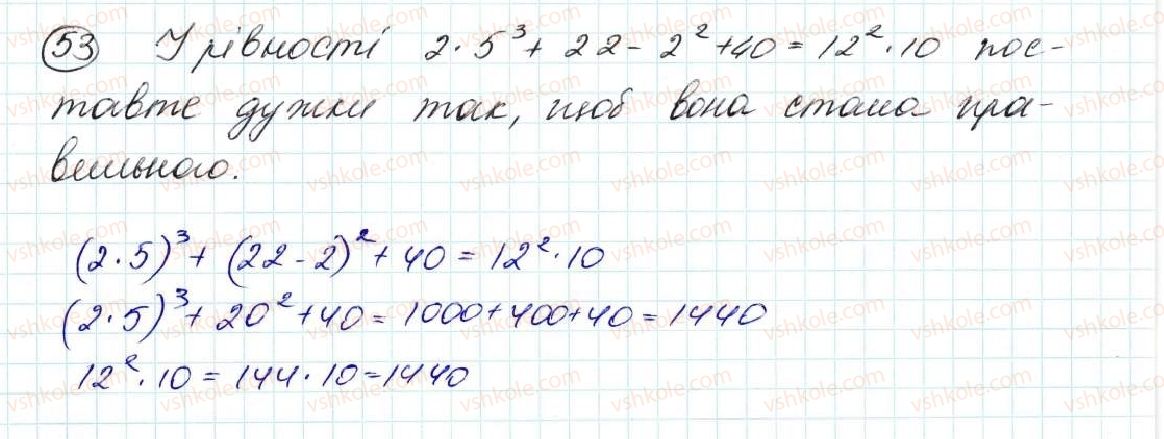 53 У рівності 2·5³+22-2²+40=12²·10 пос-
тавте дужки так, щоб вона стала пра-
вельного.
(2·5)³+(22-2)²+40=12²·10
(2·5)³+20²+40=1000+400+40=1440
12²·10=144·10=1440
vshkole.com